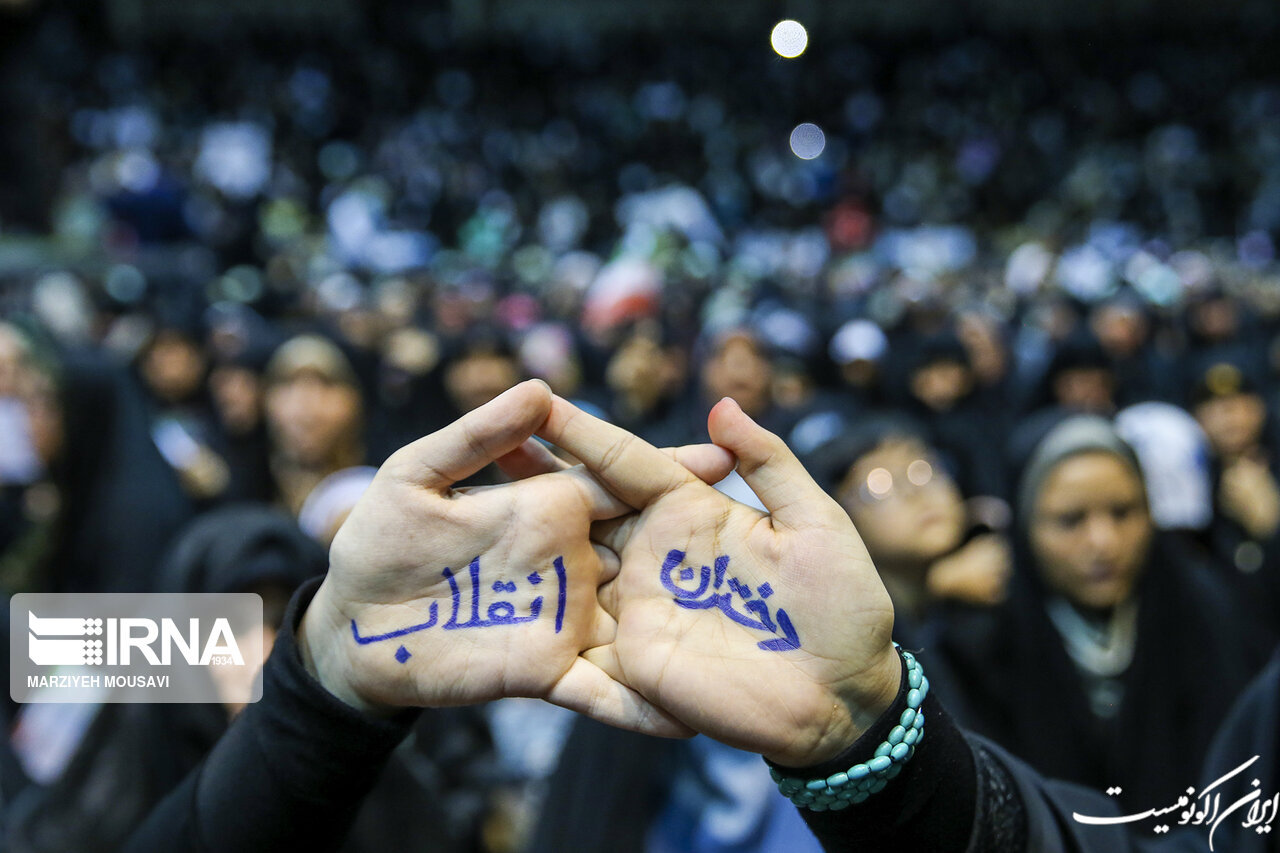 دختران
انقلاب
IRNA
1934
MARZIYEH MOUSAVI
ایران اکونومیست